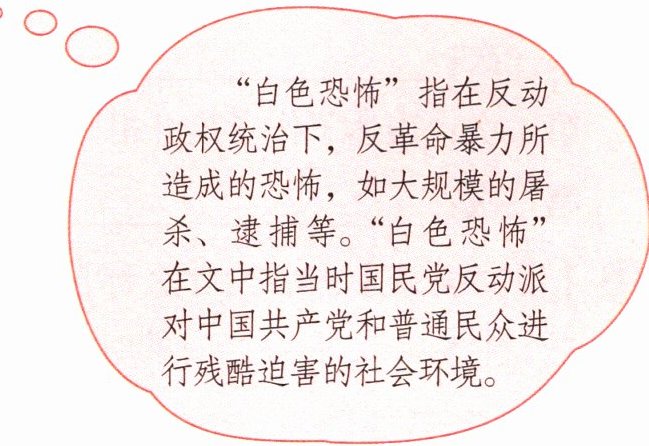 “白色恐怖”指在反动
政权统治下，反革命暴力所
造成的恐怖，如大规模的屠
杀、逮捕等。“白色恐怖”
在文中指当时国民党反动派
对中国共产党和普通民众进
行残酷迫害的社会环境。